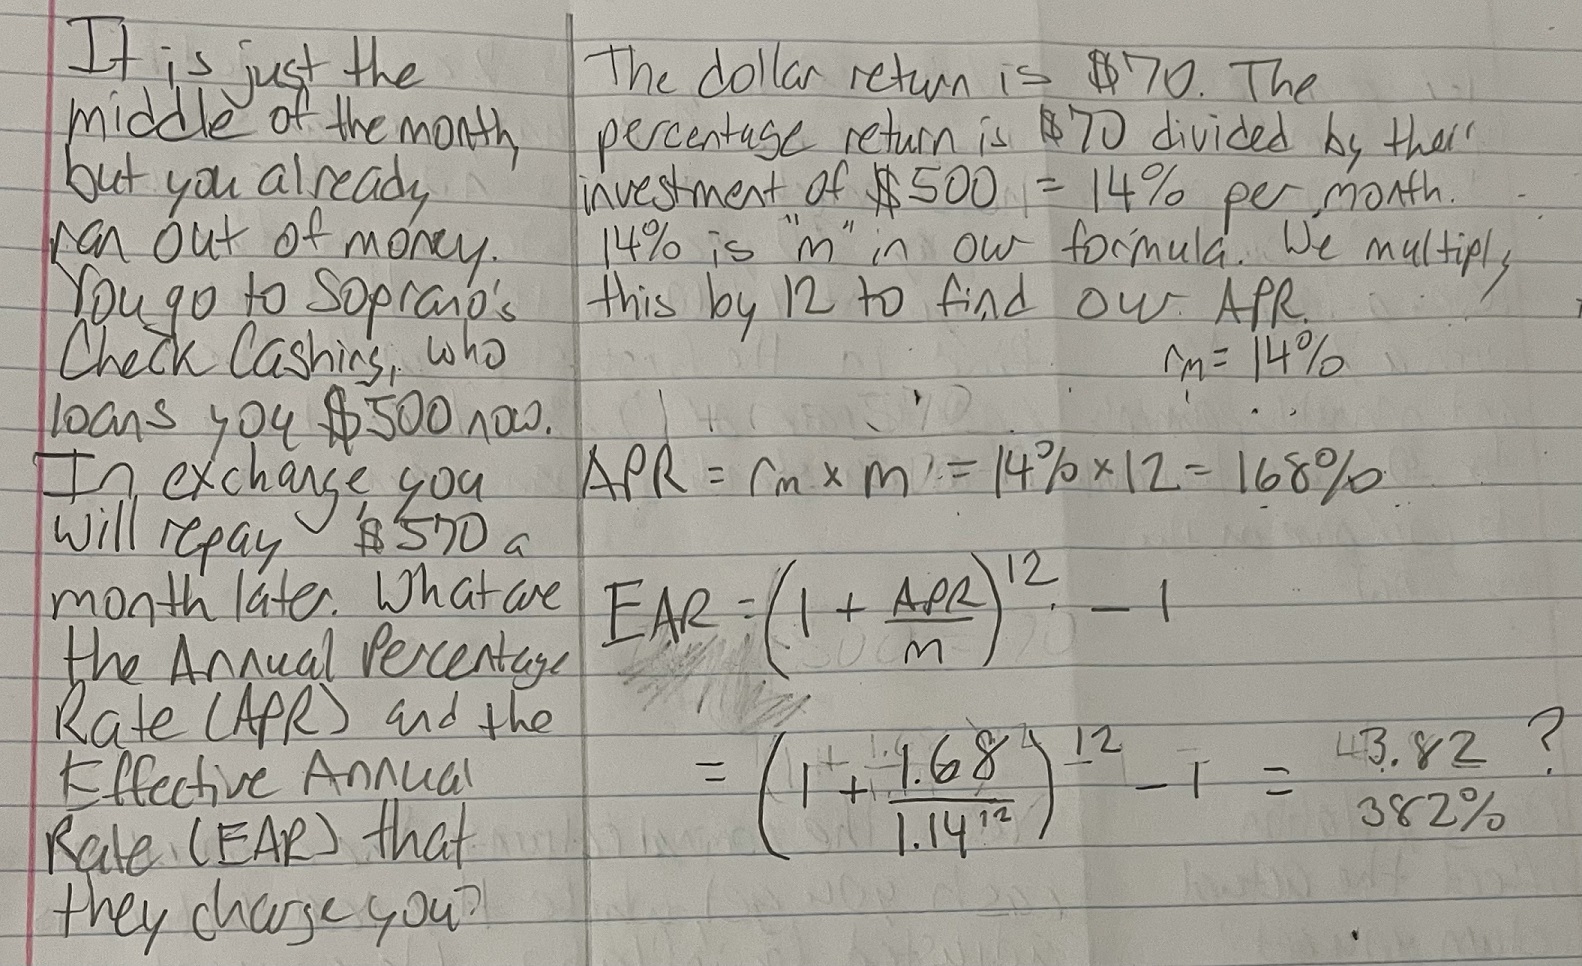 It is just the
middle of the month,
but you already
ran out of money.
You go to Soprano's
Check Cashing, who
loans you $500 now.
In exchange, you
will repay $570 a
month later. What are
the Annual Percentage
Rate (APR) and the
Effective Annual
Rate (EAR) that
they charge you?
The dollar return is $70. The
percentage return is $70 divided by their
investment of $500 = 14% per month.
14% is "m" in our formula. We multiply
this by 12 to find our APR.
rm = 14%
APR = rm x m = 14% x 12 = 168%
EAR = (1 + APR/m)^12 - 1
= (1 + 1.68/1.14^12)^12 - 1 = 43.82 ?
382%